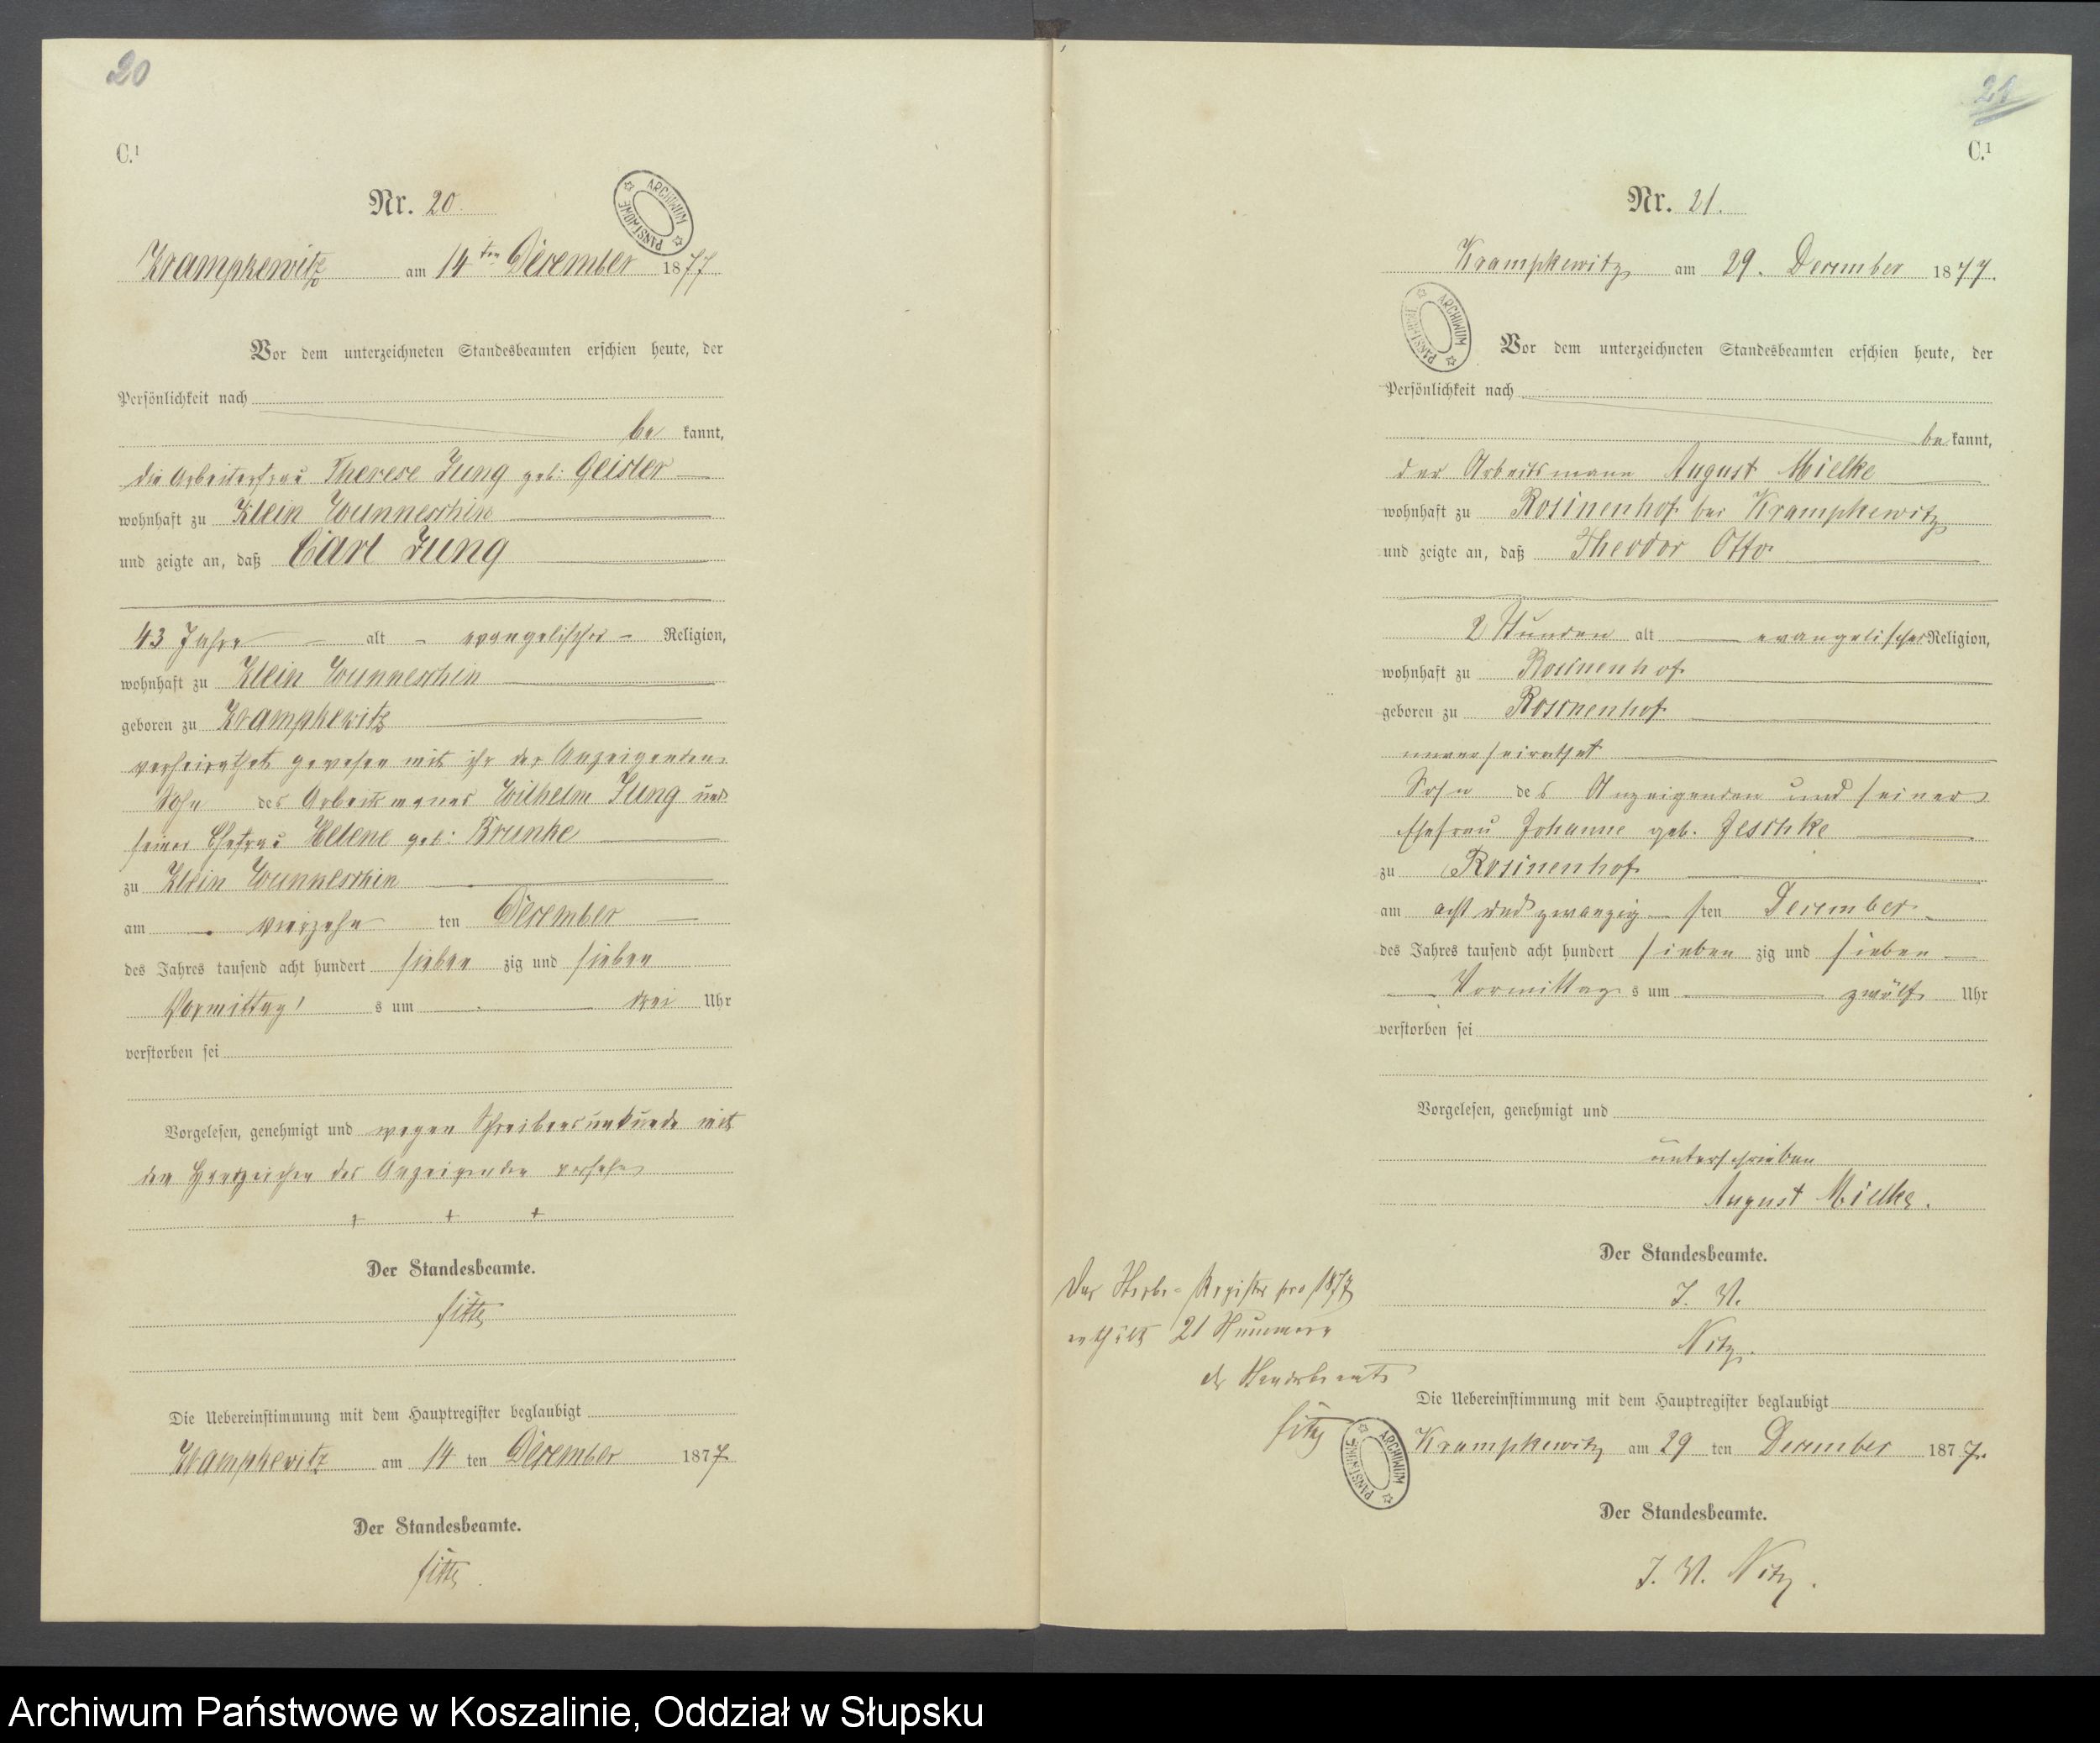 20
C.¹
Nr. 20.
ARCHIWUM PAŃSTWOWE
Krampkewitz am 14ten December 1877.
Vor dem unterzeichneten Standesbeamten erschien heute, der
Persönlichkeit nach
be kannt,
die Arbeiterfrau Therese Jung geb: Geisler
wohnhaft zu Klein Wunneschin
und zeigte an, daß Carl Jung
43 Jahre alt evangelischer Religion,
wohnhaft zu Klein Wunneschin
geboren zu Krampkewitz
verheirathet gewesen mit ihr der Anzeigenden
Sohn des Arbeitsmannes Wilhelm Jung und
seiner Ehefrau Helene geb: Brunke
zu Klein Wunneschin
am vierzehn ten December
des Jahres tausend acht hundert sieben zig und sieben
Vormittag s um drei Uhr
verstorben sei
Vorgelesen, genehmigt und wegen Schreibensunkunde mit
den Handzeichen der Anzeigenden versehen
+ + +
Der Standesbeamte.
Die Uebereinstimmung mit dem Hauptregister beglaubigt
Krampkewitz am 14 ten December 1877
Der Standesbeamte.
21
C.¹
Nr. 21.
Krampkewitz am 29. December 1877.
ARCHIWUM PAŃSTWOWE
Vor dem unterzeichneten Standesbeamten erschien heute, der
Persönlichkeit nach
be kannt,
der Arbeitsmann August Mielke
wohnhaft zu Rosinenhof bei Krampkewitz
und zeigte an, daß Theodor Otto
2 Stunden alt evangelischer Religion,
wohnhaft zu Rosinenhof
geboren zu Rosinenhof
unverheirathet
Sohn des Anzeigenden und seiner
Ehefrau Johanne geb. Jeschke
zu Rosinenhof
am acht und zwanzig sten December
des Jahres tausend acht hundert sieben zig und sieben
Vormittag s um zwölf Uhr
verstorben sei
Vorgelesen, genehmigt und
unterschrieben
August Mielke.
Der Standesbeamte.
J. V.
Nitz.
Das Sterbe-Register pro 1877
enthält 21 Nummern
der Standesbeamte
Die Uebereinstimmung mit dem Hauptregister beglaubigt
ARCHIWUM PAŃSTWOWE
Krampkewitz am 29 ten December 1877.
Der Standesbeamte.
J. V. Nitz.
Archiwum Państwowe w Koszalinie, Oddział w Słupsku